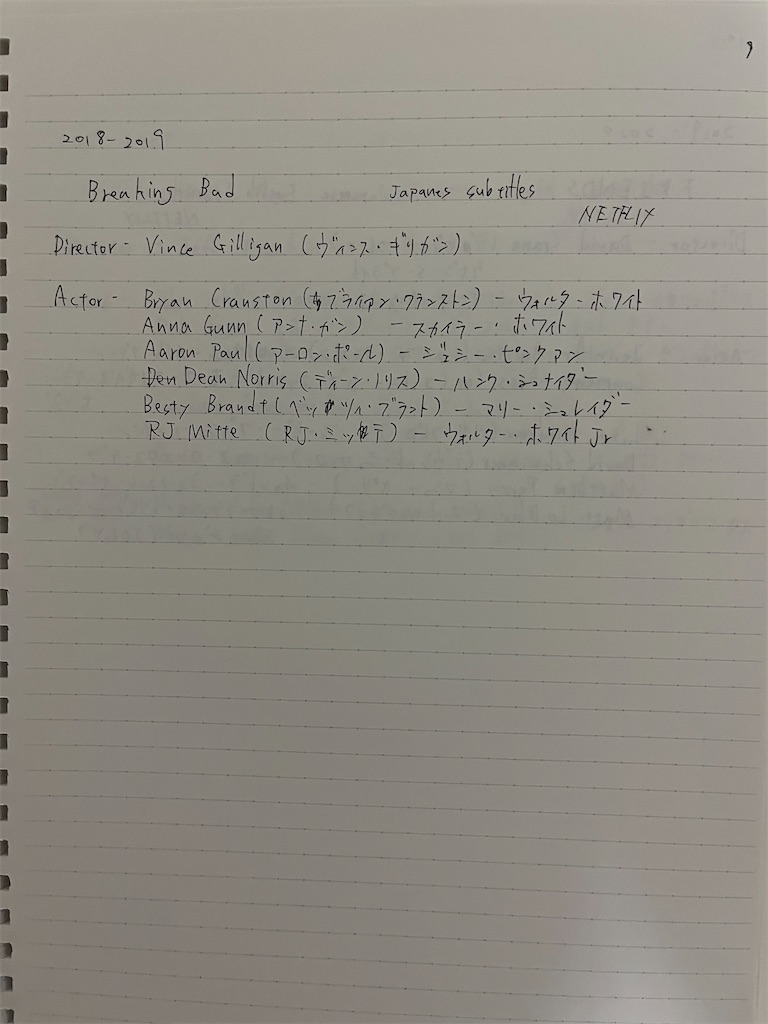 9
2018-2019
Breaking Bad Japanes subtitles
NETFLIX
Director - Vince Gilligan (ヴィンス・ギリガン)
Actor - Bryan Cranston (ブライアン・クランストン) - ウォルター・ホワイト
Anna Gunn (アンナ・ガン) - スカイラー・ホワイト
Aaron Paul (アーロン・ポール) - ジェシー・ピンクマン
Dean Norris (ディーン・ノリス) - ハンク・シュナイダー
Besty Brandt (ベッツィ・ブラント) - マリー・シュレイダー
RJ Mitte (RJ・ミッテ) - ウォルター・ホワイト Jr